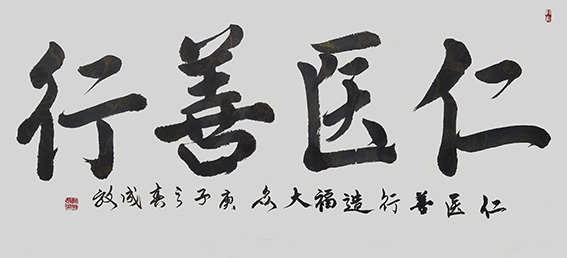 仁医善行
仁医善行造福大众 庚子之春成